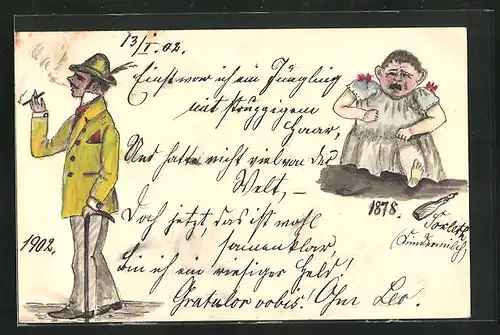 13/I. 02.
Einst war ich ein Jüngling
mit struppigem
Haar,
Und hatte nicht viel von der
Welt, –
Doch jetzt, das ist wohl
sonnenklar,
bin ich ein riesiger Held!
Gratulor vobis! Leo.
1902.
1878.